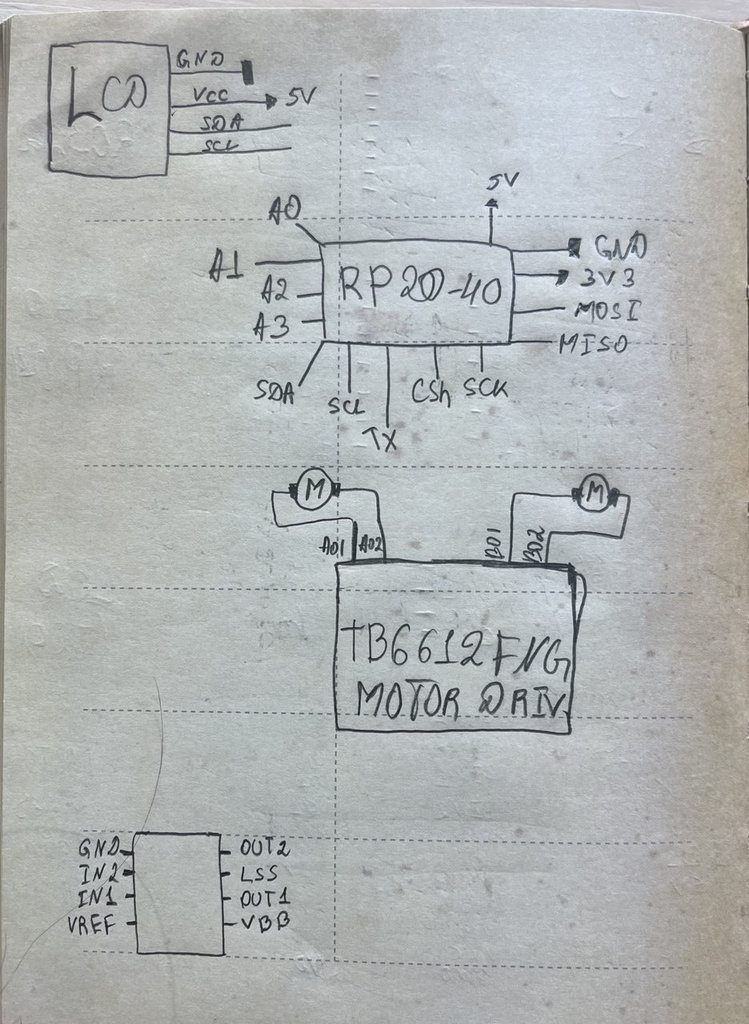 LCD
GND
VCC
5V
SDA
SCL
5V
A0
A1
A2
A3
RP20-40
GND
3V3
MOSI
MISO
SDA
SCL
TX
CSn
SCK
M
M
A01
A02
B01
B02
TB6612FNG
MOTOR DRIV
GND
IN2
IN1
VREF
OUT2
LSS
OUT1
VBB